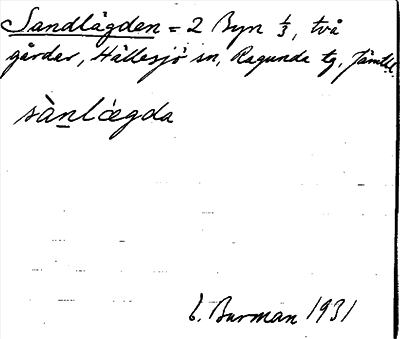 Sandlägden = 2 Byn 1/3, två
gårdar, Hällesjö sn, Ragunda tg, Jämtl.
sànlǽgda
E. Burman 1931